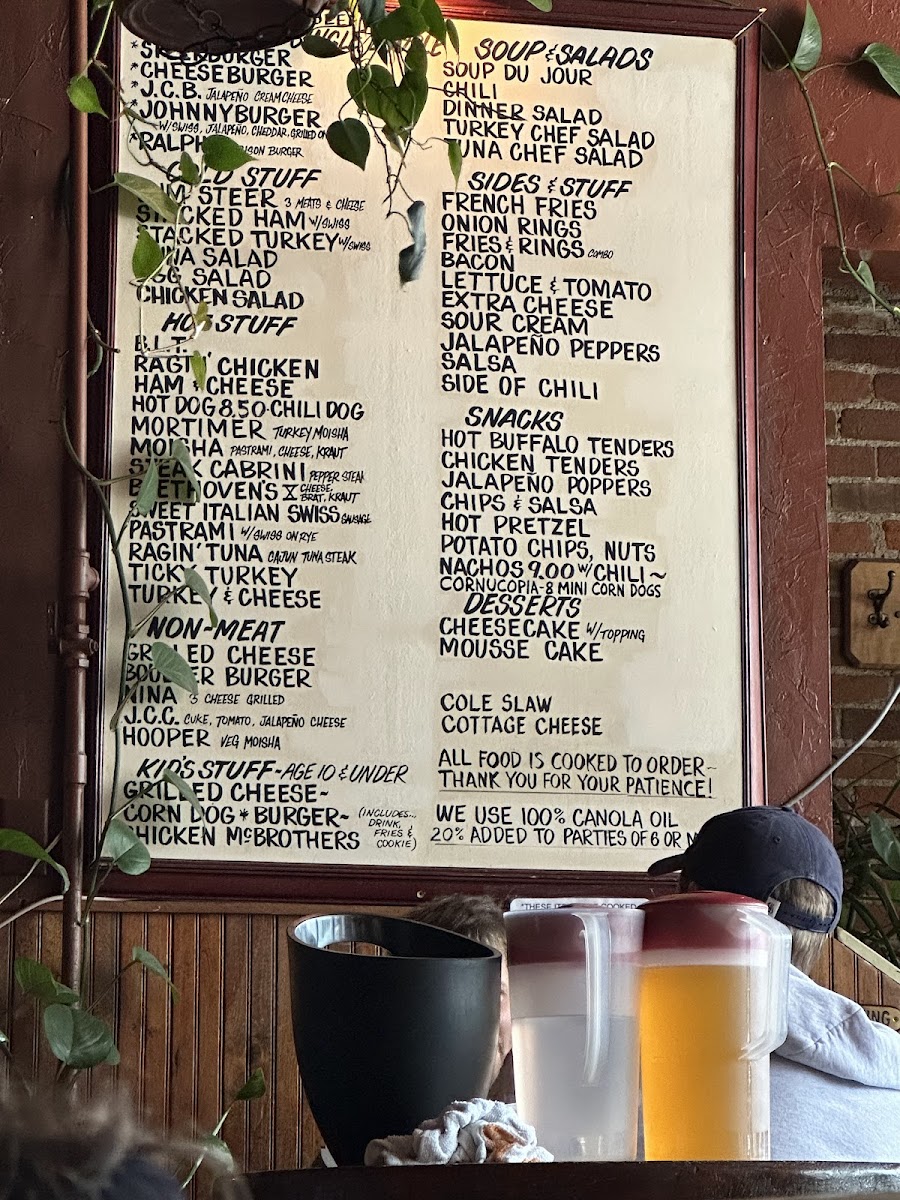 *CHEESEBURGER
*J.C.B. JALAPEÑO CREAM CHEESE
*JOHNNYBURGER
W/SWISS, JALAPEÑO, CHEDDAR, GRILLED ON
*RALPH BURGER
STUFF
STEER 3 MEATS & CHEESE
STACKED HAM W/SWISS
STACKED TURKEY W/SWISS
SALAD
EGG SALAD
CHICKEN SALAD
HOT STUFF
B.L.T.
RAGIN' CHICKEN
HAM & CHEESE
HOT DOG 8.50 · CHILI DOG
MORTIMER TURKEY MOISHA
MOISHA PASTRAMI, CHEESE, KRAUT
STEAK CABRINI PEPPER STEAK
BEETHOVEN'S X CHEESE, BRAT, KRAUT
SWEET ITALIAN SWISS SAUSAGE
PASTRAMI W/SWISS ON RYE
RAGIN' TUNA CAJUN TUNA STEAK
TICKY TURKEY
TURKEY & CHEESE
NON-MEAT
GRILLED CHEESE
BOULDER BURGER
NINA 3 CHEESE GRILLED
J.C.C. CUKE, TOMATO, JALAPEÑO CHEESE
HOOPER VEG MOISHA
KID'S STUFF - AGE 10 & UNDER
GRILLED CHEESE~
CORN DOG * BURGER~
CHICKEN McBROTHERS
(INCLUDES...
DRINK,
FRIES &
COOKIE)
SOUP & SALADS
SOUP DU JOUR
CHILI
DINNER SALAD
TURKEY CHEF SALAD
TUNA CHEF SALAD
SIDES & STUFF
FRENCH FRIES
ONION RINGS
FRIES & RINGS COMBO
BACON
LETTUCE & TOMATO
EXTRA CHEESE
SOUR CREAM
JALAPEÑO PEPPERS
SALSA
SIDE OF CHILI
SNACKS
HOT BUFFALO TENDERS
CHICKEN TENDERS
JALAPEÑO POPPERS
CHIPS & SALSA
HOT PRETZEL
POTATO CHIPS, NUTS
NACHOS 9.00 W/CHILI ~
CORNUCOPIA - 8 MINI CORN DOGS
DESSERTS
CHEESECAKE W/TOPPING
MOUSSE CAKE
COLE SLAW
COTTAGE CHEESE
ALL FOOD IS COOKED TO ORDER~
THANK YOU FOR YOUR PATIENCE!
WE USE 100% CANOLA OIL
20% ADDED TO PARTIES OF 6 OR